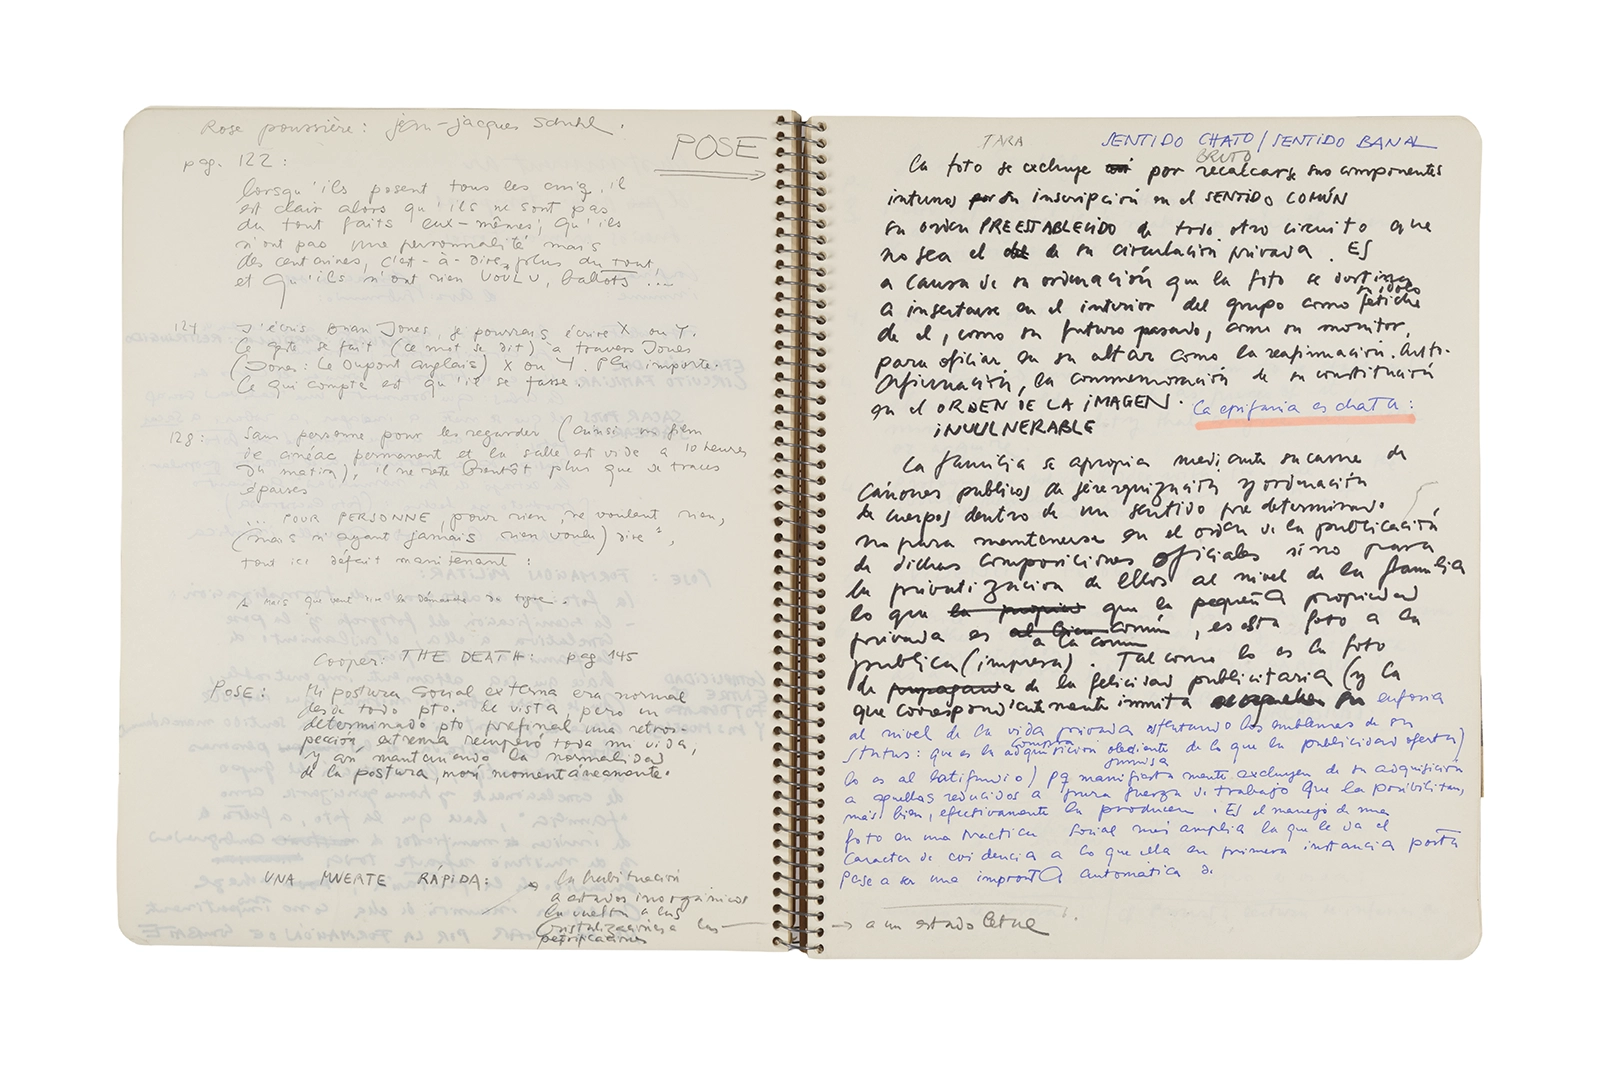 Rose poussière: jean-jacques Schuhl.
POSE
pag. 122:
lorsqu'ils posent tous les cinq, il
est clair alors qu'ils ne sont pas
du tout faits eux-mêmes; qu'ils
n'ont pas une personnalité mais
des centaines, c'est-à-dire, plus du tout
et qu'ils n'ont rien VOULU, ballots ...
124 J'écris Brian Jones, je pourrais écrire X ou Y.
Ce geste se fait (ce mot se dit) à travers Jones
(Jones: Le Dupont anglais) X ou Y. Peu importe.
Ce qui compte est qu'il se fasse.
128: Sans personne pour les regarder (ainsi un film
de cinéac permanent et la salle est vide a 10 heures
du matin), il ne reste bientôt plus que de traces
épaisses
... POUR PERSONNE, pour rien, ne voulant rien,
(mais n'ayant jamais rien voulu) dire",
tout ici défait maintenant:
A mais que veut rien la démarche du tigre.
Cooper: THE DEATH: pag 145
POSE: Mi postura social externa era normal
desde todo pto. de vista, pero un
determinado pto prefinal una retros-
pección extrema recuperó toda mi vida,
y aún manteniendo la normalidad
de la postura, morí momentáneamente.
UNA MUERTE RÁPIDA: la habituación
a estados inorgánicos
la vuelta a las
Cristalizaciones a las
petrificaciones
TARA SENTIDO CHATO / SENTIDO BANAL
BRUTO
La foto se excluye por recalcarse sus componentes
internos por su inscripción en el SENTIDO COMÚN
su orden PREESTABLECIDO de todo otro circuito que
no sea el de su circulación privada. ES
a causa de su ordenación que la foto se destina
a insertarse en el interior del grupo como fetiche
su ídolo
de el, como su futuro pasado, como su monitor,
para oficiar en su altar como la reafirmación. Auto-
Afirmación, la conmemoración de su constitución
en el ORDEN DE LA IMAGEN. La epifanía es chata:
INVULNERABLE
La familia se apropia mediante su carne de
Cánones publicos de jerarquización y ordenación
de cuerpos dentro de un sentido pre determinado
no para mantenerse en el orden de la publicación
de dichas composiciones oficiales sino para
la privatización de ellos al nivel de la familia
lo que la propied que la pequeña propiedad
privada es al bien común, es esta foto a la
a la común
publica (impresa). Tal como lo es la foto
de propaganda de la felicidad publicitaria (y la
que correspondientemente inmita su euforia
al nivel de la vida privada ostentando los emblemas de su
status: que es la adquisición obediente de lo que la publicidad oferta)
sumisa
lo es al latifundio) pq manifiesta mente excluyen de su adquisición
a aquellos reducidos a pura fuerza de trabajo que la posibilitan,
más bien, efectivamente la producen. Es el manejo de una
foto en una practica social más amplia la que le da el
Caracter de evidencia a lo que ella en primera instancia porta
pasa a ser una impronta automática de
→ a un estado Letal